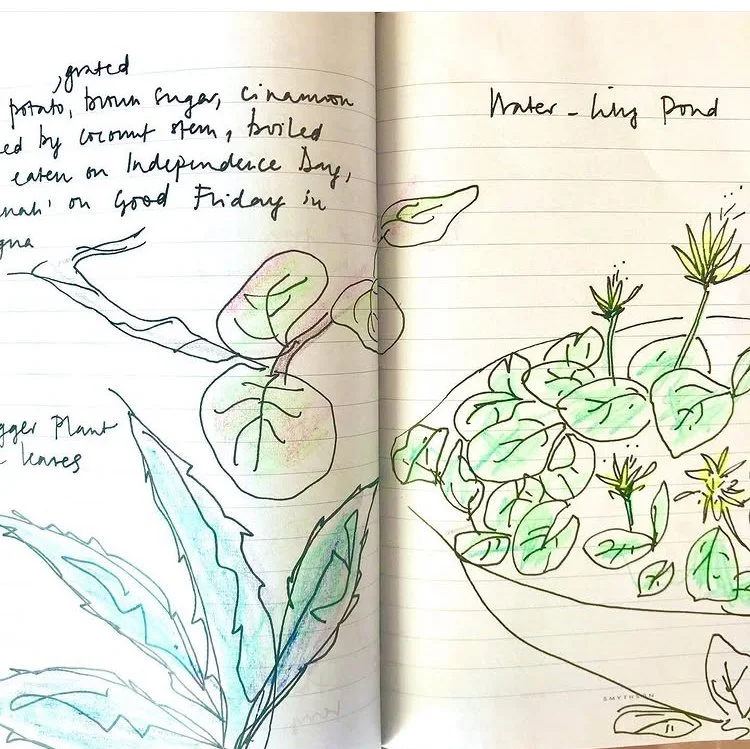 , grated
potato, brown sugar, cinnamon
ed by coconut stem, boiled
eaten on Independence Day,
nnah' on Good Friday in
gua
gger Plant
leaves
Water-lily Pond
SMYTHSON